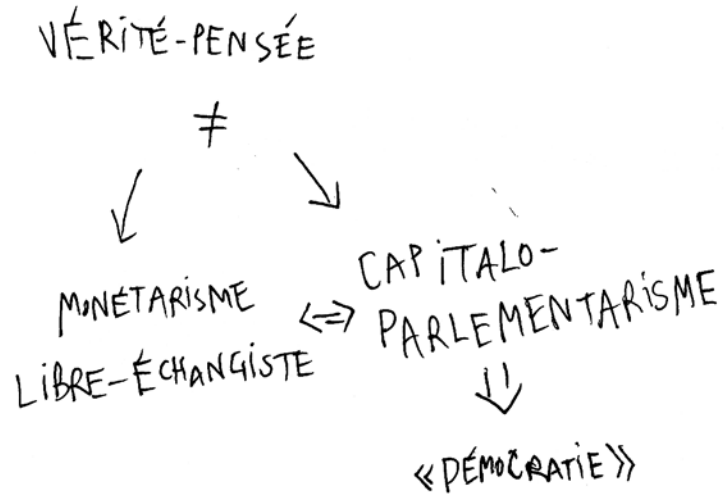 VÉRITÉ-PENSÉE
≠
MONÉTARISME
LIBRE-ÉCHANGISTE
<=>
CAPITALO-
PARLEMENTARISME
«DÉMOCRATIE»